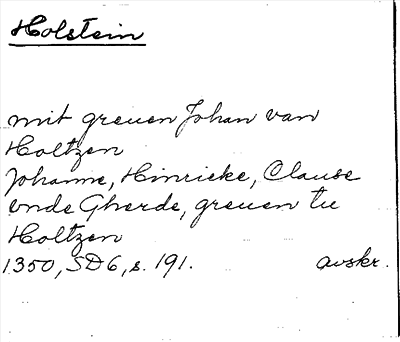 Holstein
mit greuen Johan van
Holtzen
Johanne, Hinricke, Clause
vnde Gherde, greuen tu
Holtzen
1350, SD6, s. 191. avskr.